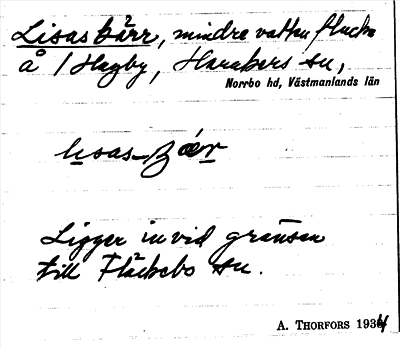 Lisaskärr, mindre vattenfläck
å 1 Hagby, Harakers sn,
Norrbo hd, Västmanlands län
lisas-
Ligger invid gränsen
till Fläckebo sn.
A. THORFORS 1934